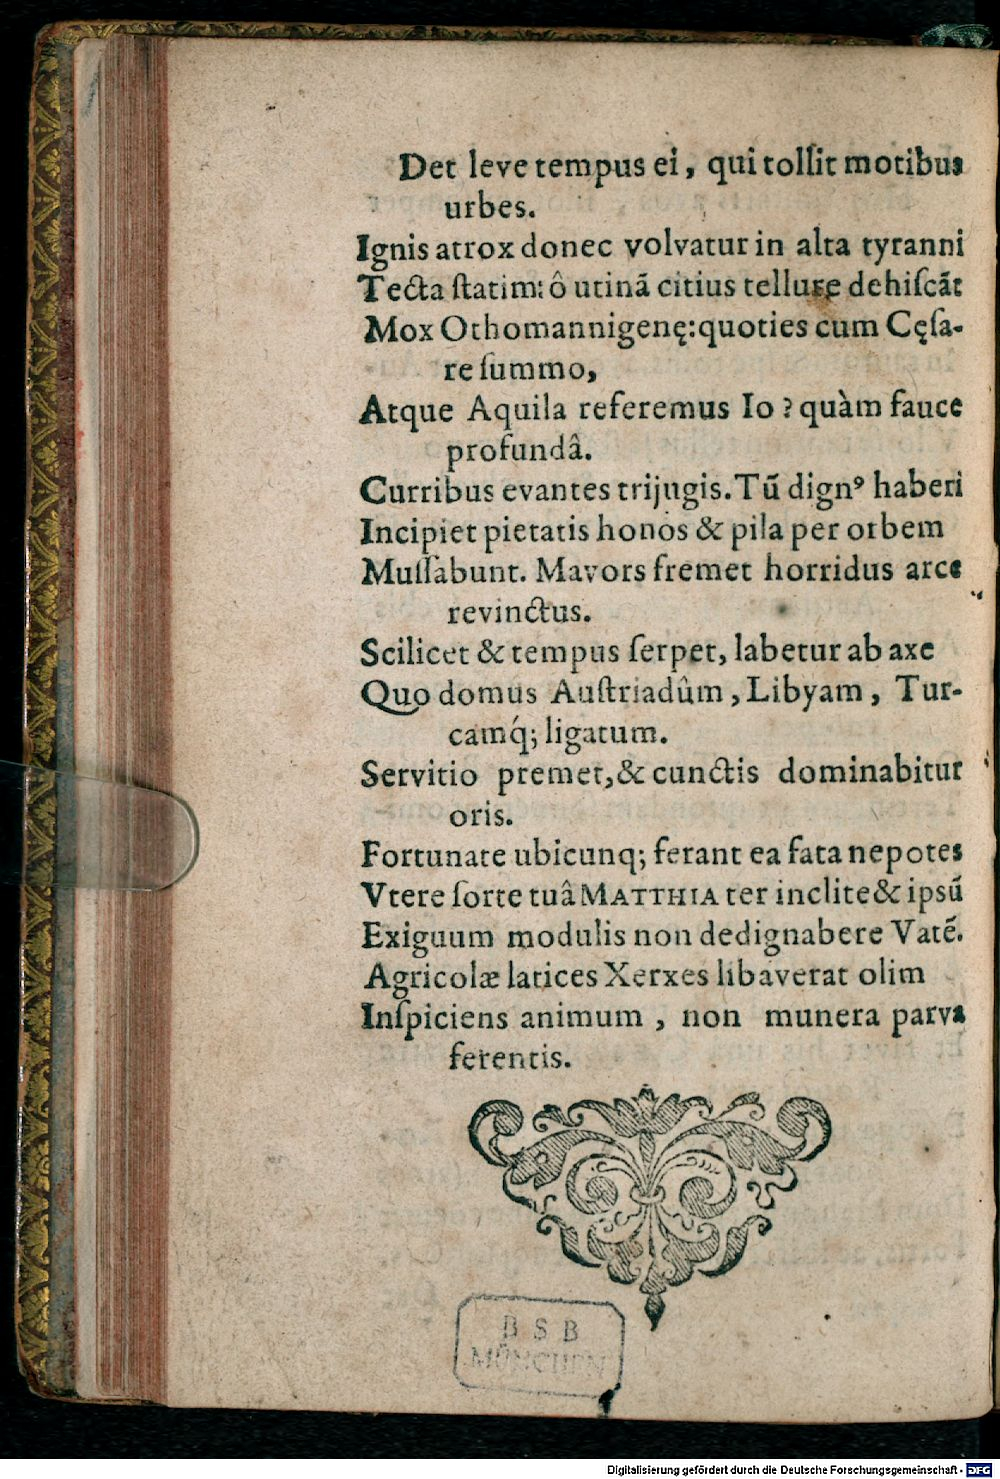 Det leve tempus ei, qui tollit motibus
urbes.
Ignis atrox donec volvatur in alta tyranni
Tecta ſtatim: ô utinã citius tellure dehiſcãt
Mox Othomannigenę: quoties cum Cęſa-
re ſummo,
Atque Aquila referemus Io? quàm fauce
profundâ.
Curribus evantes trijugis. Tũ dignꝰ haberi
Incipiet pietatis honos & pila per orbem
Muſſabunt. Mavors fremet horridus arce
revinctus.
Scilicet & tempus ſerpet, labetur ab axe
Quo domus Auſtriadûm, Libyam, Tur-
camq́; ligatum.
Servitio premet, & cunctis dominabitur
oris.
Fortunate ubicunq; ferant ea fata nepotes
Vtere ſorte tuâ MATTHIA ter inclite & ipsũ
Exiguum modulis non dedignabere Vatẽ.
Agricolæ latices Xerxes libaverat olim
Inſpiciens animum, non munera parva
ferentis.
BSB
MÜNCHEN
Digitalisierung gefördert durch die Deutsche Forschungsgemeinschaft - DFG